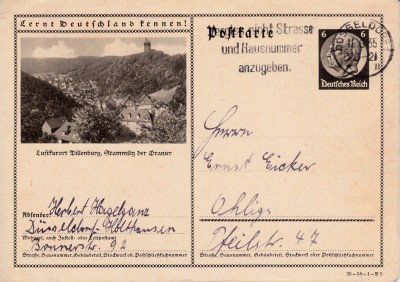 Lernt Deutschland kennen!
Luftkurort Dillenburg, Stammsitz der Oranier
Absender: Herbert Hagelganz
Düsseldorf-Holthausen
Wohnort, auch Zustell- oder Leitpostamt
Bonnerstr. 92
Straße, Hausnummer, Gebäudeteil, Stockwerk od. Postschließfachnummer
Postkarte
nicht Strasse
und Hausnummer
anzugeben.
6 6
Deutsches Reich
Herrn
Ernst Eicker
Ohligs
Pfeilstr. 47
Straße, Hausnummer, Gebäudeteil, Stockwerk oder Postschließfachnummer